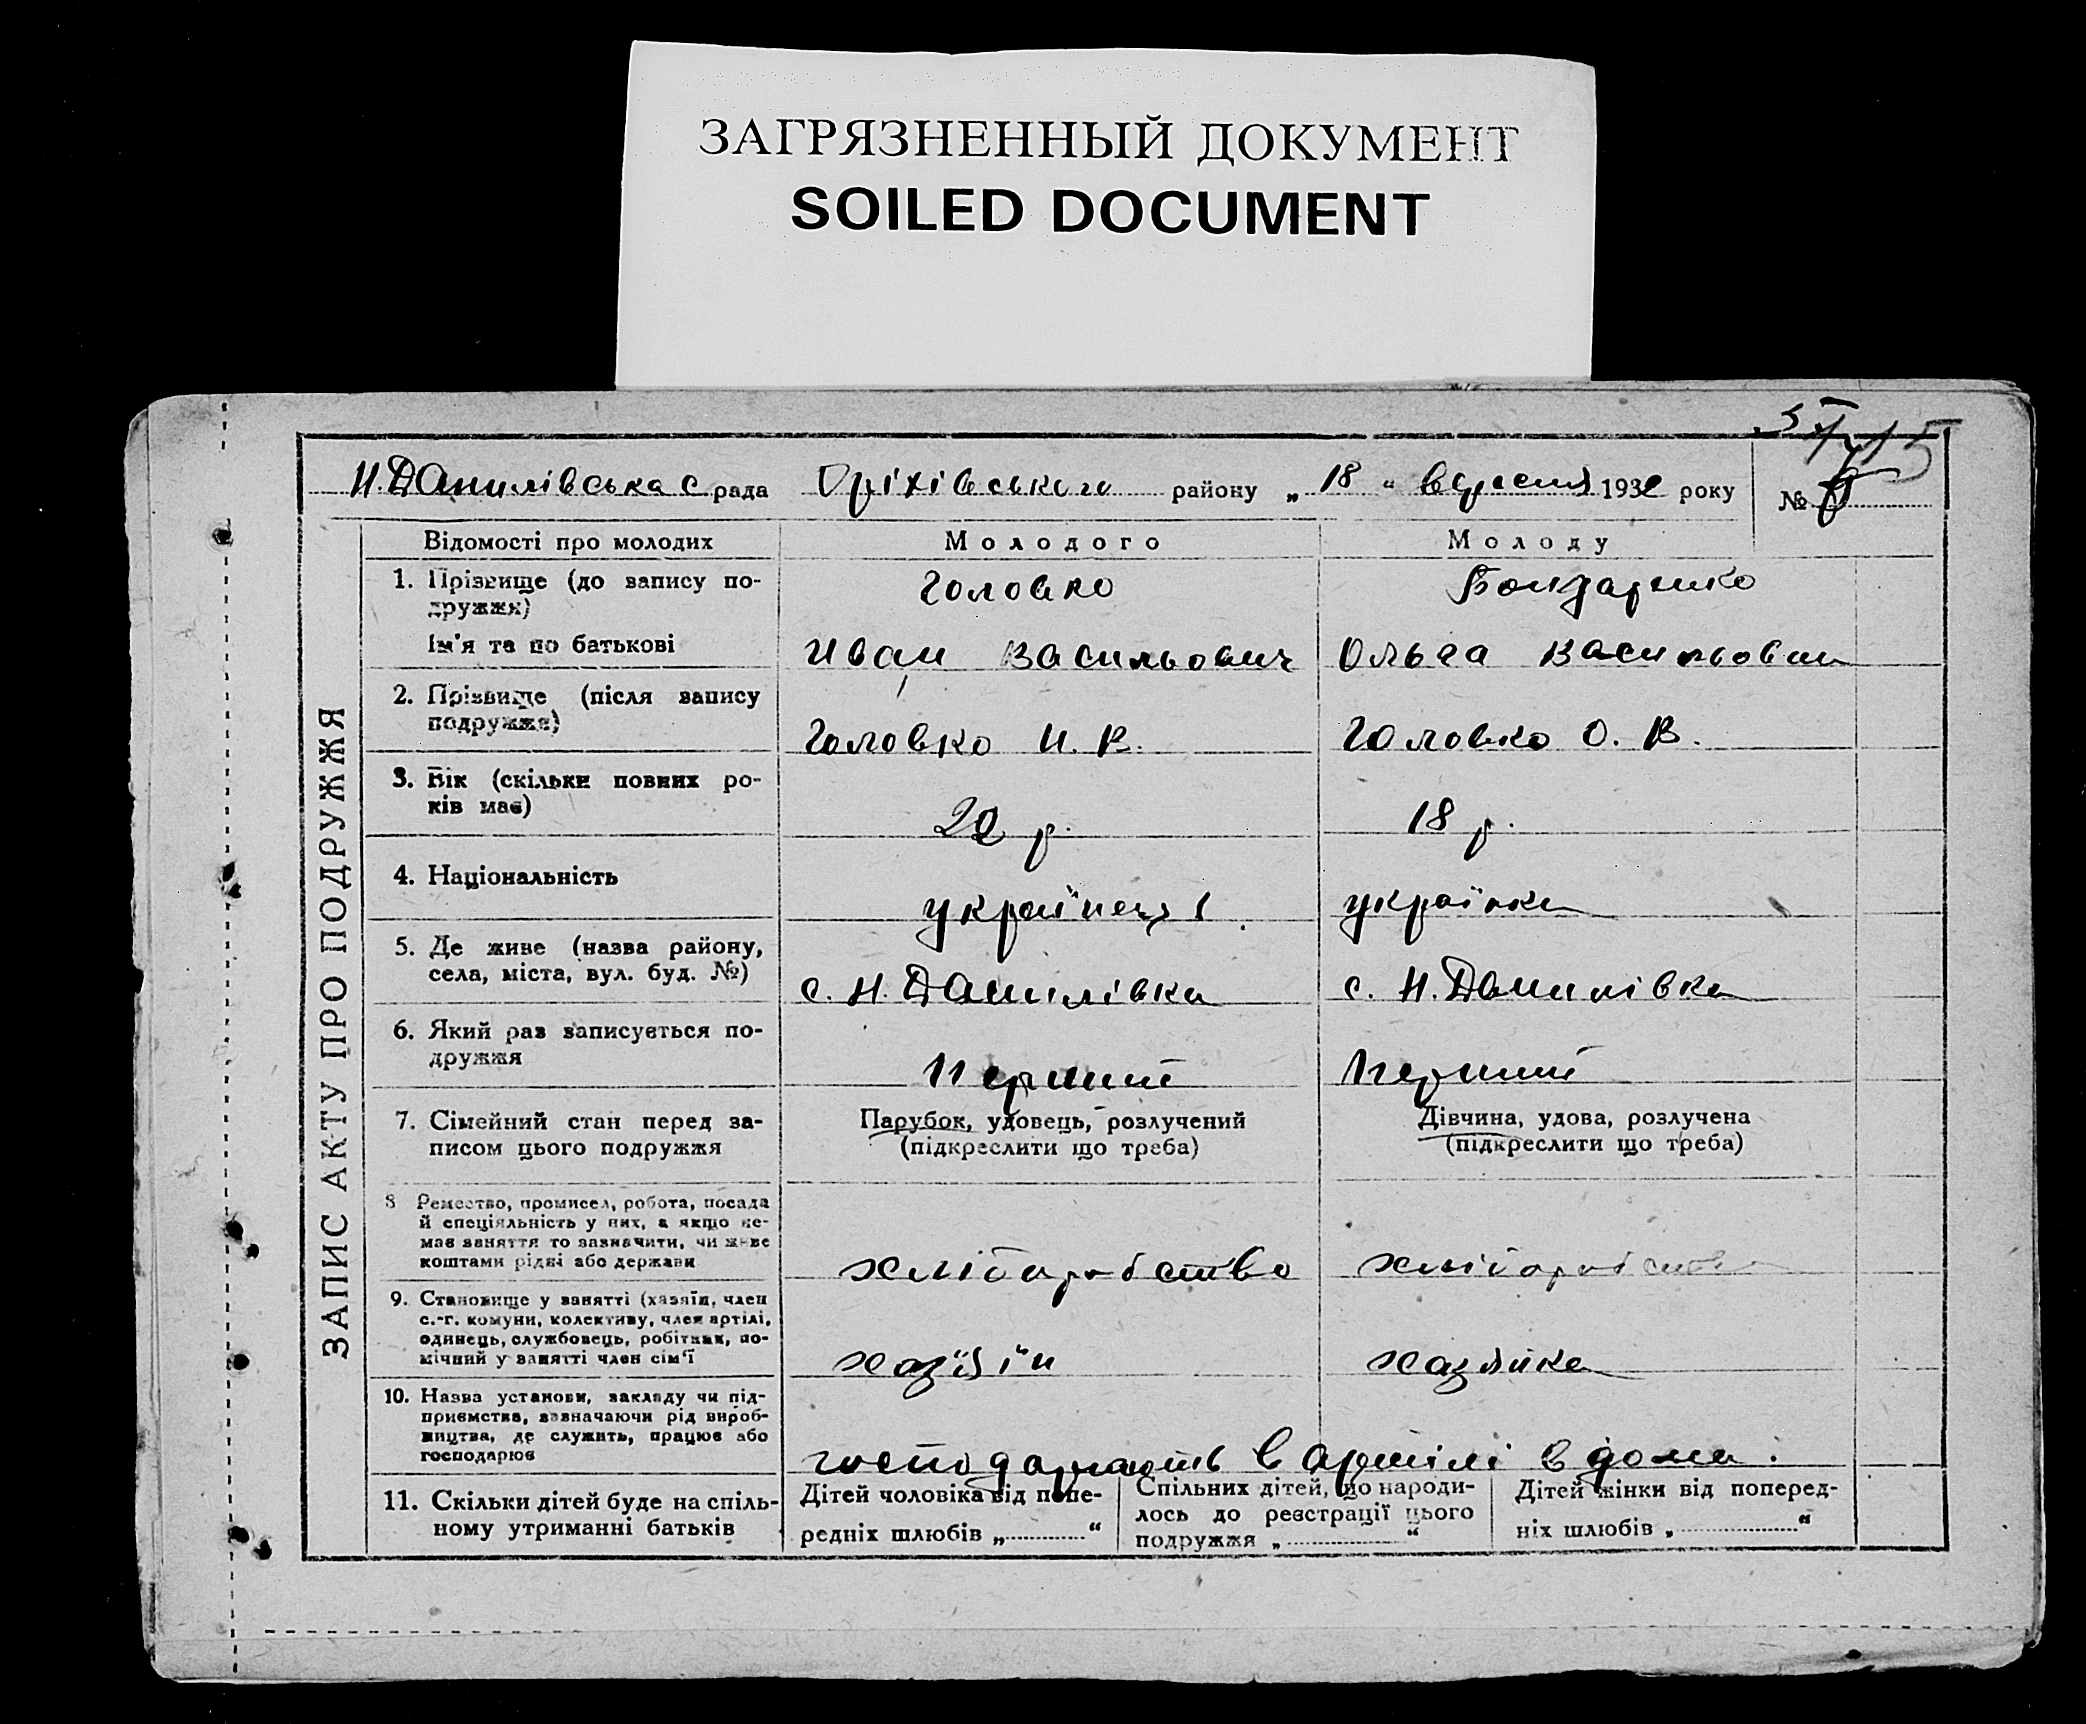 ЗАГРЯЗНЕННЫЙ ДОКУМЕНТ
SOILED DOCUMENT
Н.Данилівська с рада Оріхівського району „ 18 “ вересня 1932 року №
ЗАПИС АКТУ ПРО ПОДРУЖЖЯ
Відомості про молодих Молодого Молоду
1. Прізвище (до запису по-
дружжя) Головко Бондаренко
Ім'я та по батькові Иван Васильович Ольга Васильовна
2. Прізвище (після запису
подружжя) Головко И. В. Головко О. В.
3. Вік (скільки повних ро-
ків має) 22 р. 18 р.
4. Національність українец українка
5. Де живе (назва району,
села, міста, вул. буд. №) с. Н. Данилівка с. Н. Данилівка
6. Який раз записується по-
дружжя Перший Перший
7. Сімейний стан перед за-
писом цього подружжя
Парубок, удовець, розлучений
(підкреслити що треба)
Дівчина, удова, розлучена
(підкреслити що треба)
8 Ремество, промисел, робота, посада
й спеціяльність у них, а якщо не-
має заняття то зазначити, чи живе
коштами рідні або держави хліборобство хліборобство
9. Становище у занятті (хазяїн, член
с.-г. комуни, колективу, член артілі,
одинець, службовець, робітник, по-
мічний у занятті член сім'ї хазяїн хазяйка
10. Назва установи, закладу чи під-
приємства, зазначаючи рід вироб-
ництва, де служить, працює або
господарює господарюють в артілі вдома.
11. Скільки дітей буде на спіль-
ному утриманні батьків
Дітей чоловіка від попе-
редніх шлюбів „ “
Спільних дітей, що народи-
лось до реєстрації цього
подружжя „ “
Дітей жінки від поперед-
ніх шлюбів „ “